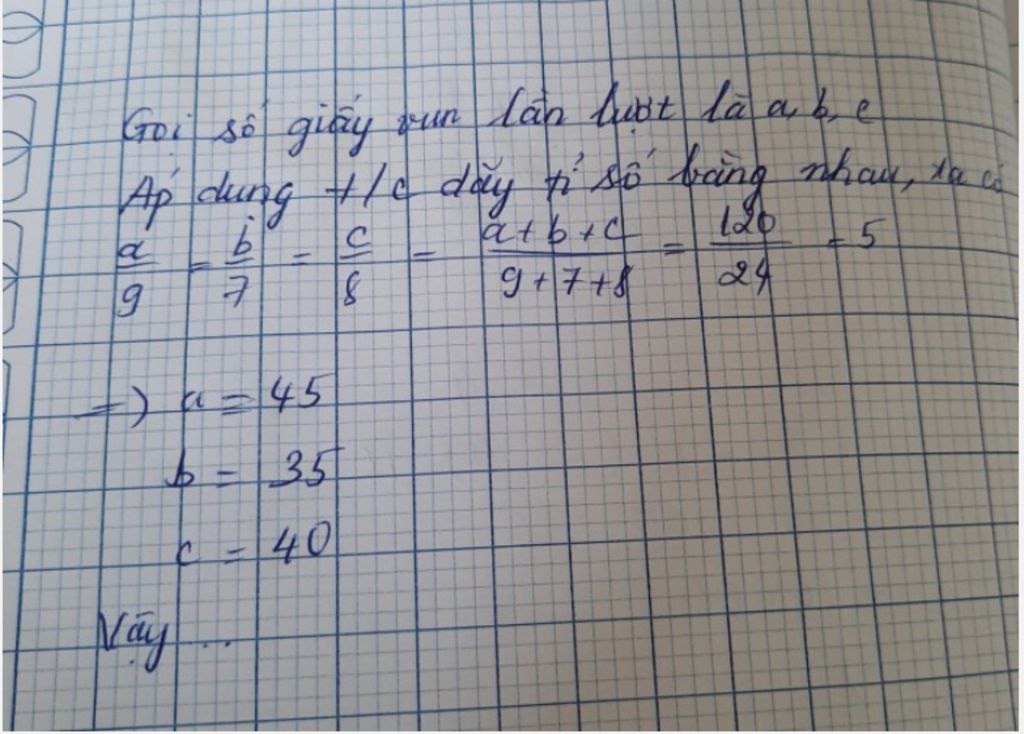 Gọi số giấy vụn lần lượt là a, b, c
Áp dụng t/c dãy tỉ số bằng nhau, ta có
a/9 = b/7 = c/8 = (a+b+c)/(9+7+8) = 120/24 = 5
=) a = 45
b = 35
c = 40
Vậy ...